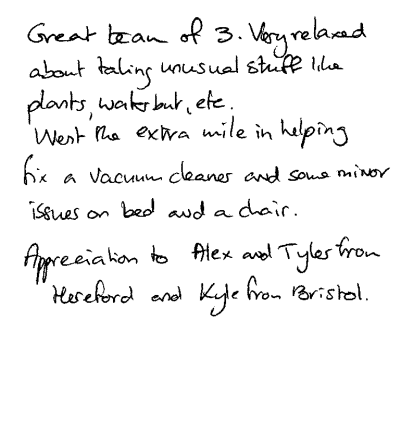 Great team of 3. Very relaxed
about taking unusual stuff like
plants, waterbut, etc.
Went the extra mile in helping
fix a vacuum cleaner and some minor
issues on bed and a chair.
Appreciation to Alex and Tyler from
Hereford and Kyle from Bristol.